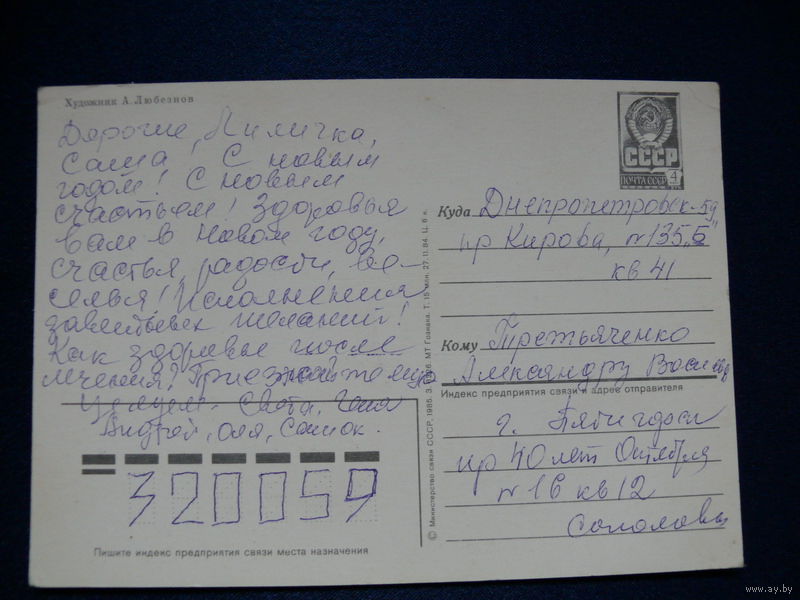 Художник А. Любезнов
Дорогие, Лиличка,
Саша! С новым
годом! С новым
счастьем! Здоровья
вам в Новом году,
счастья, радости, ве-
селья! Исполнения
желаний!
Как здоровье после
лечения? Приезжайте
Целуем. Света, Толя
Андрей, Оля, Сашок.
320059
Пишите индекс предприятия связи места назначения
© Министерство связи СССР, 1985. МТ Гознака. 27.11.84. Ц. 6 к.
СССР
ПОЧТА СССР 4
Куда Днепропетровск-59
пр Кирова, п 135 "Б"
кв 41
Кому Третьяченко
Александру Васильев
Индекс предприятия связи и адрес отправителя
г. Пятигорск
пр 40 лет Октября
п 16 кв 12
Соколовы
www.ay.by